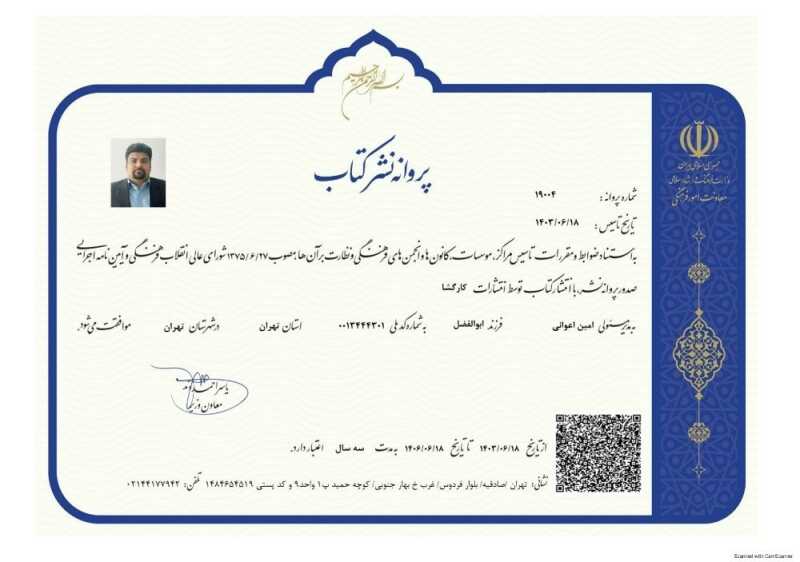 بسم الله الرحمن الرحیم
جمهوری اسلامی ایران
وزارت فرهنگ و ارشاد اسلامی
معاونت امور فرهنگی
پروانه نشر کتاب
شماره پروانه: ۱۹۰۰۴
تاریخ تاسیس: ۱۴۰۳/۰۶/۱۸
به استناد ضوابط و مقررات تاسیس مراکز، موسسات، کانون ها و انجمن های فرهنگی و نظارت بر آن ها؛ مصوب ۱۳۷۵/۶/۲۷ شورای عالی انقلاب فرهنگی و آیین نامه اجرایی
صدور پروانه نشر، با انتشار کتاب توسط انتشارات کارگشا
به مدیرمسئولی امین اعوالی فرزند ابوالفضل به شماره کد ملی ۰۰۱۳۴۴۴۳۰۱ استان تهران در شهرستان تهران موافقت می‌شود.
یاسر احمدوند
معاون وزیر
از تاریخ ۱۴۰۳/۰۶/۱۸ تا تاریخ ۱۴۰۶/۰۶/۱۸ به مدت سه سال اعتبار دارد.
نشانی: تهران /صادقیه/ بلوار فردوس/ غرب خ بهار جنوبی/ کوچه حمید پ۱ واحد۹ و کد پستی ۱۴۸۴۶۵۴۵۱۹ تلفن: ۰۲۱۴۴۱۷۷۹۴۲
Scanned with CamScanner